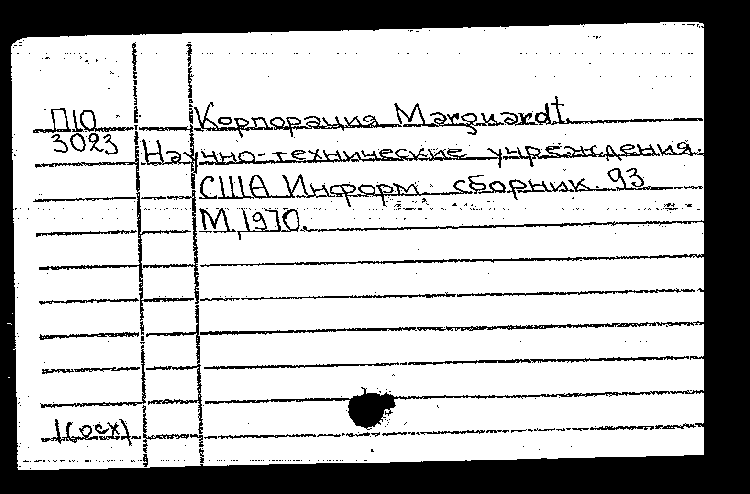 П10 Корпорация Marquardt.
3023 Научно-технические учреждения.
США Информ. сборник. 93
М, 1970.
1(осх)